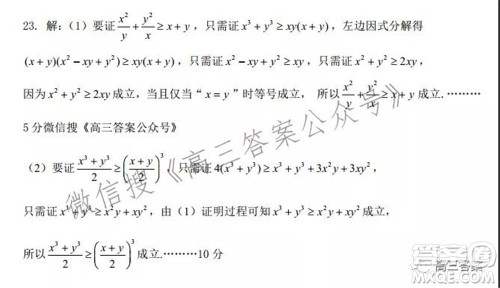 23. 解：（1）要证 x²/y + y²/x ≥ x + y ，只需证 x³ + y³ ≥ xy(x + y) ，左边因式分解得
(x + y)(x² − xy + y²) ≥ xy(x + y) ，只需证 x² − xy + y² ≥ xy ，只需证 x² + y² ≥ 2xy ，
因为 x² + y² ≥ 2xy 成立，当且仅当“ x = y ”时等号成立， 所以 x²/y + y²/x ≥ x + y 成立.………
5 分微信搜《高三答案公众号》
（2）要证 (x³ + y³)/2 ≥ ((x + y)/2)³ ，只需证 4(x³ + y³) ≥ x³ + y³ + 3x²y + 3xy² ，
只需证 x³ + y³ ≥ x²y + xy² ，由（1）证明过程可知 x³ + y³ ≥ x²y + xy² 成立，
所以 (x³ + y³)/2 ≥ ((x + y)/2)³ 成立.………10 分
微信搜《高三答案公众号》
高三答案